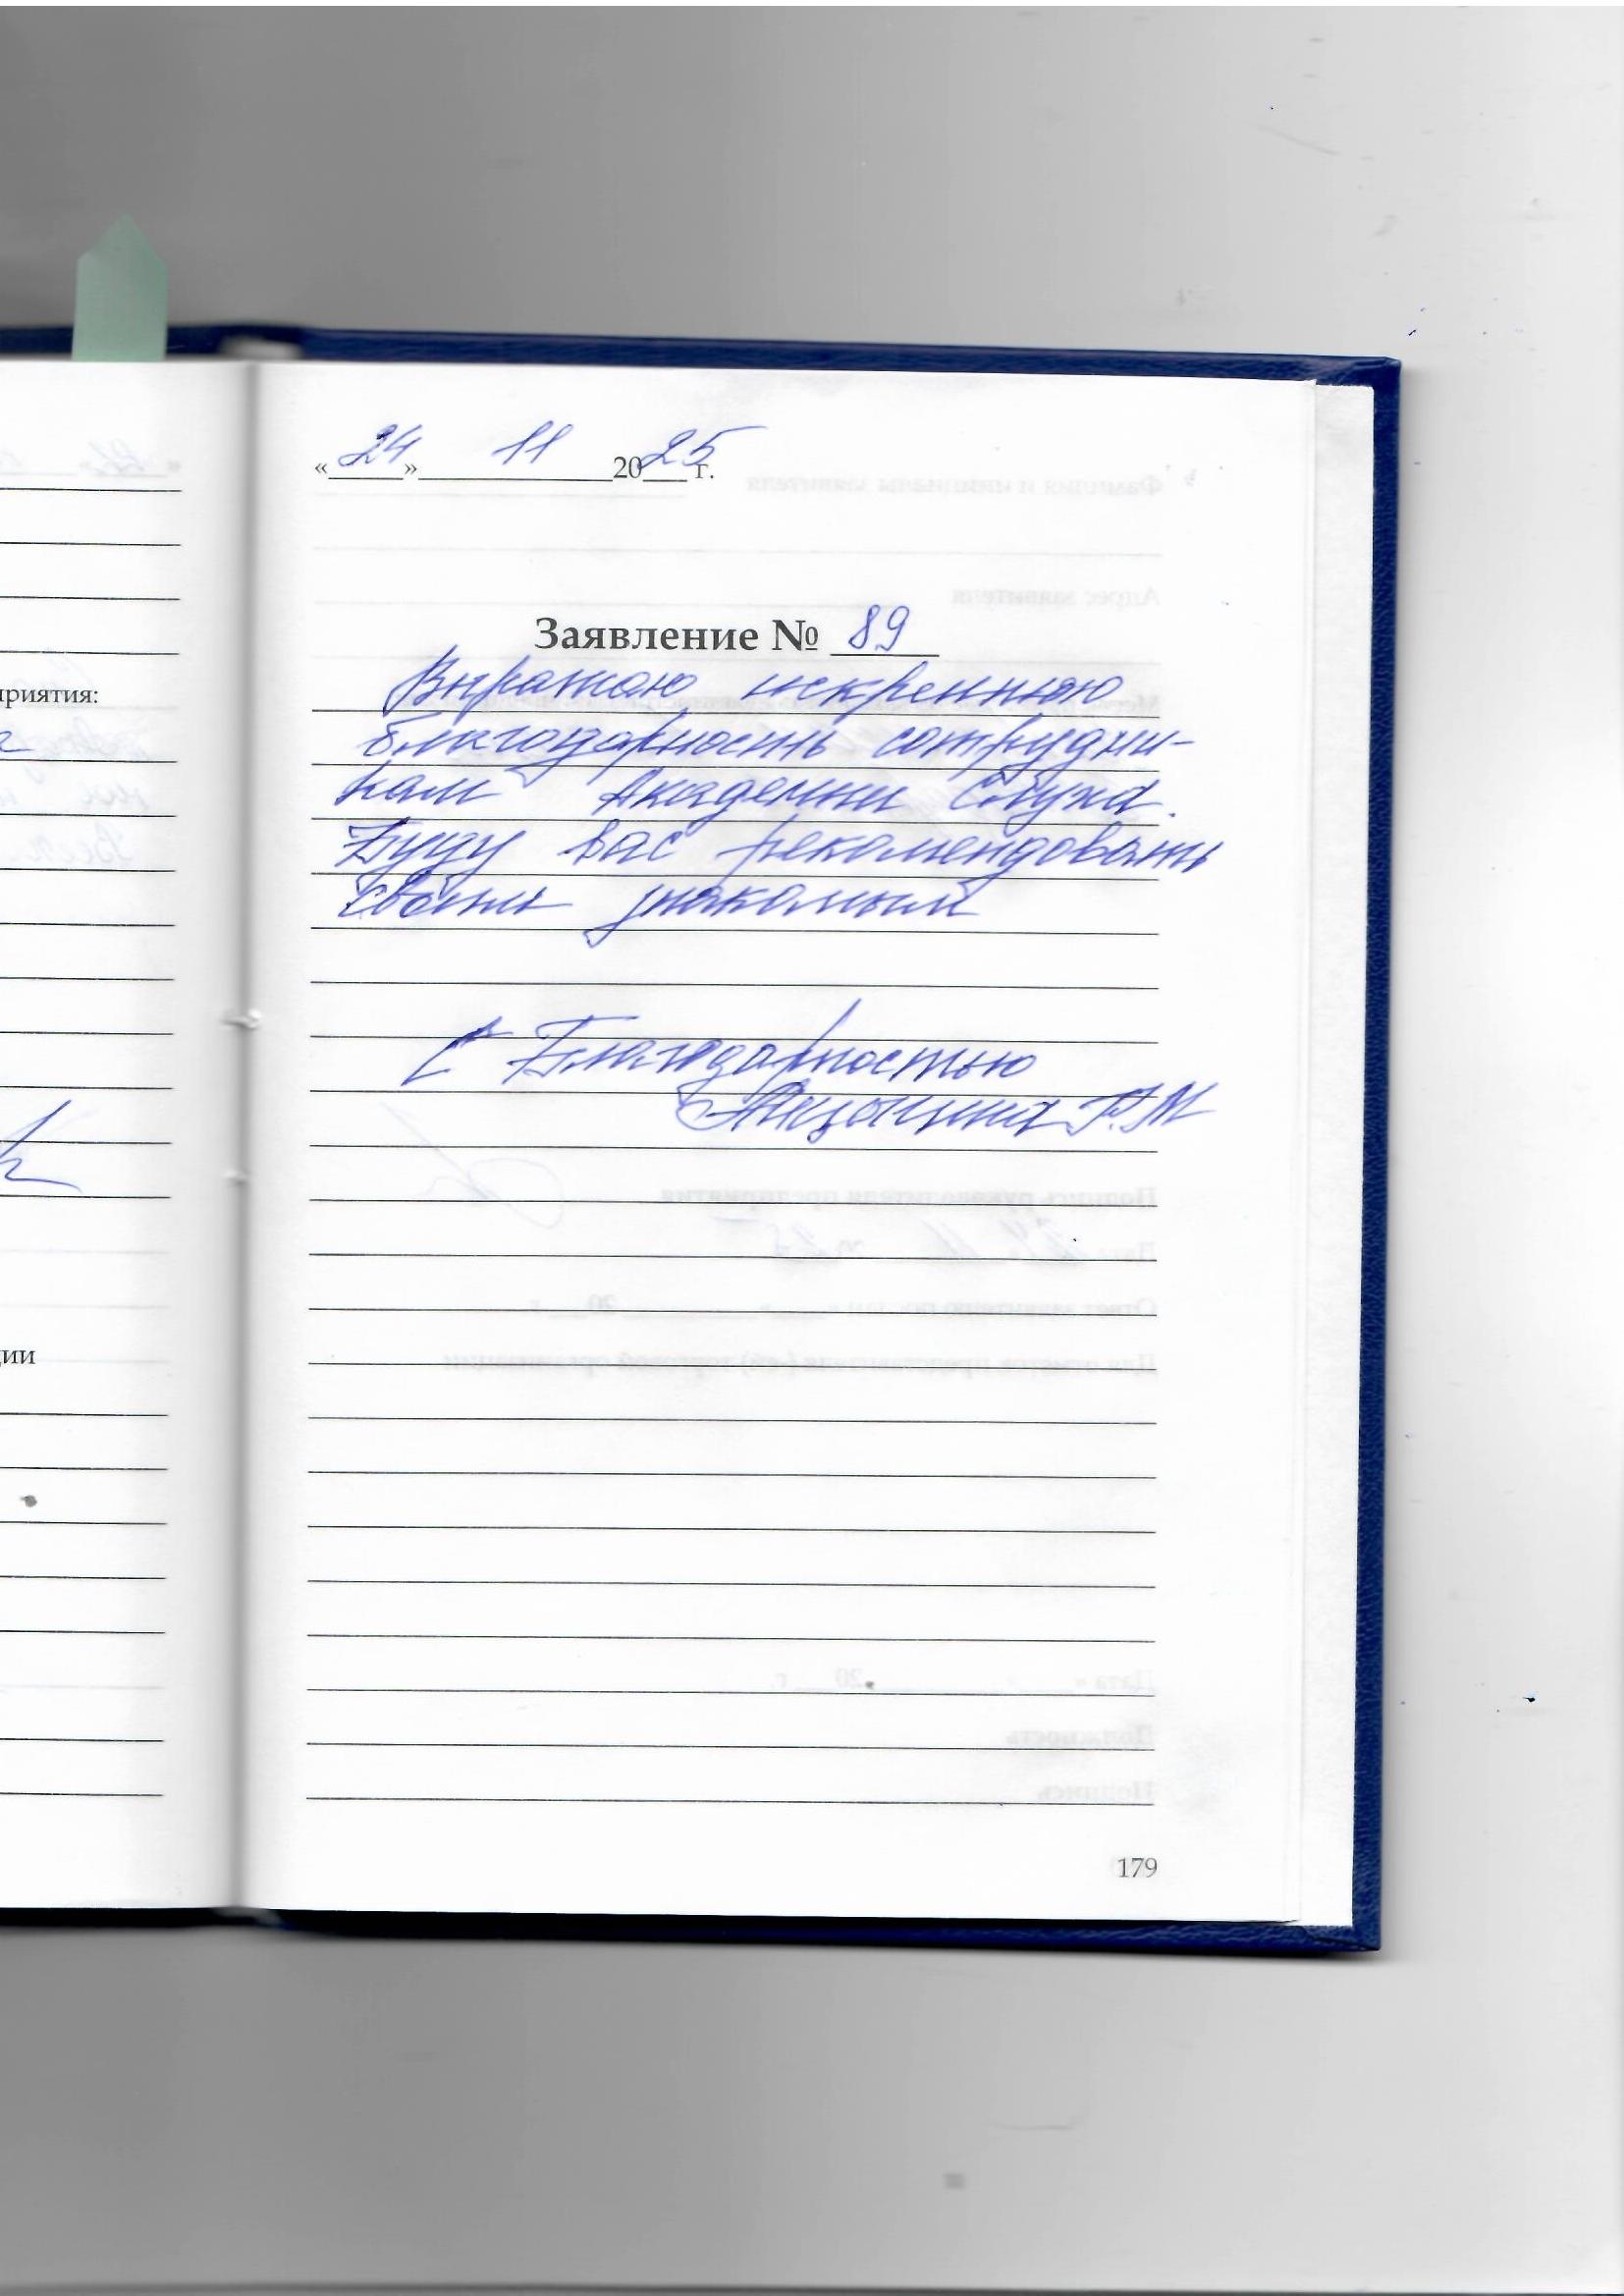 «24» 11 2025 г.
Заявление № 89
Выражаю искреннюю
благодарность сотрудни-
кам Академии Слуха.
Буду вас рекомендовать
своим знакомым
С Благодарностью
Р.М
179
приятия:
ции